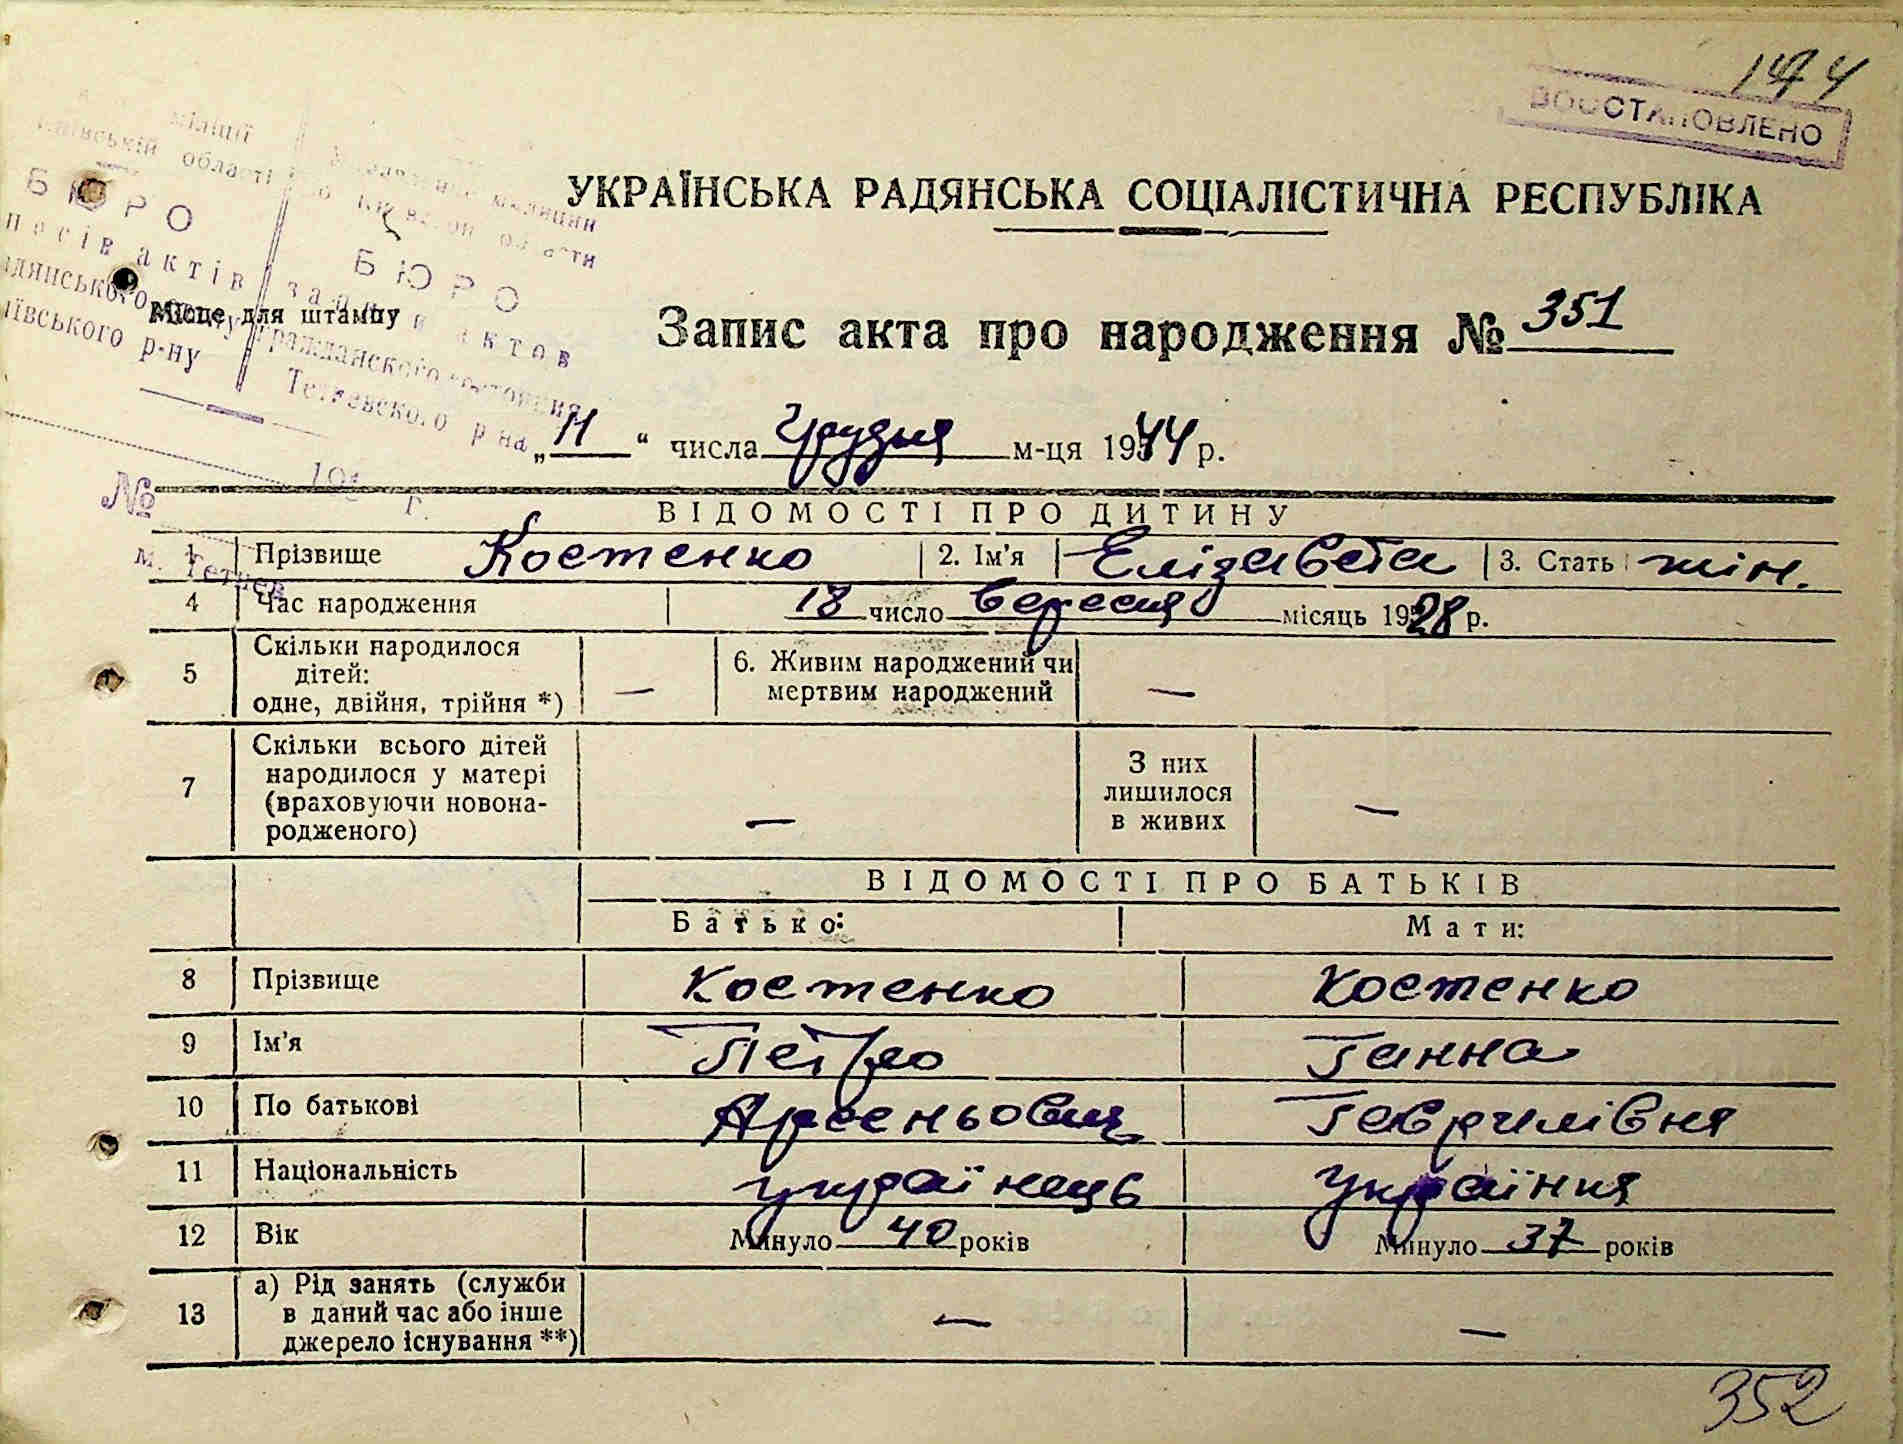 144
ВОССТАНОВЛЕНО
міліції
області
БЮРО
актів
р-ну
милиции
БЮРО
актов
гражданского состояния
Тетиевского р на
№ 195 г.
м. Тетиев
УКРАЇНСЬКА РАДЯНСЬКА СОЦІАЛІСТИЧНА РЕСПУБЛІКА
Місце для штампу
Запис акта про народження № 351
„11“ числа Грудня м-ця 1944 р.
ВІДОМОСТІ ПРО ДИТИНУ
1 Прізвище Костенко 2. Ім'я Елізавета 3. Стать жін.
4 Час народження 18 число вересня місяць 1928 р.
5 Скільки народилося дітей: одне, двійня, трійня *) — 6. Живим народжений чи мертвим народжений —
7 Скільки всього дітей народилося у матері (враховуючи новонародженого) — З них лишилося в живих —
ВІДОМОСТІ ПРО БАТЬКІВ
Батько: Мати:
8 Прізвище Костенко Костенко
9 Ім'я Петро Ганна
10 По батькові Арсеньович Гаврилівна
11 Національність українець українка
12 Вік Минуло 40 років Минуло 37 років
13 а) Рід занять (служби в даний час або інше джерело існування **) — —
352